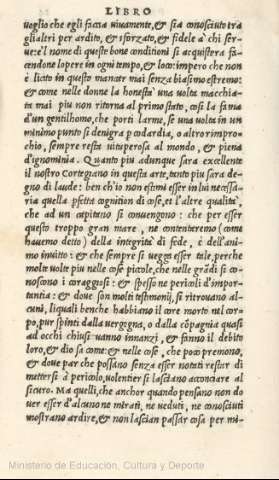 LIBRO
voglio che egli faccia vivamente, & sia conosciuto tra
gli altri per ardito, & sforzato, & fidele à chi ser-
ve: e'l nome di queste bone conditioni si acquistera fa-
cendone l'opere in ogni tempo, & loco: impero che non
è licito in questo mancar mai senza biasimo estremo:
& come nelle donne la honestà una volta macchia-
ta mai piu non ritorna al primo stato, cosi la fama
d'un gentilhomo, che porti l'arme, se una volta in un
minimo punto si denigra p codardia, o altro rimpro-
chio, sempre resta vituperosa al mondo, & piena
d'ignominia. Quanto piu adunque sara excellente
il nostro Cortegiano in questa arte, tanto piu sara de-
gno di laude: ben ch'io non estimi esser in lui necessa-
ria quella pfetta cognition di cose, et l'altre qualità,
che ad un capitano si convengono: che per esser
questo troppo gran mare, ne contenteremo (come
havemo detto) della integrità di fede, è dell'ani-
mo invitto: & che sempre si vegga esser tale, perche
molte volte piu nelle cose picole, che nelle grādi si co-
noscono i coraggiosi: & spesso ne pericoli d'impor-
tantia: & dove son molti testimonij, si ritrovano al-
cuni, li quali benche habbiano il core morto nel cor-
po, pur spinti dalla vergogna, o dalla cōpagnia quasi
ad occhi chiusi vanno innanzi, & fanno il debito
loro, & dio sa come: & nelle cose, che poco premono,
& dove par che possano senza esser notati restar di
mettersi à pericolo, volentier si lasciano acconciare al
sicuro. Ma quelli, che anchor quando pensano non do
ver esser d'alcuno ne mirati, ne veduti, ne conosciuti
mostrano ardire, & non lascian passar cosa per mi-
Ministerio de Educación, Cultura y Deporte